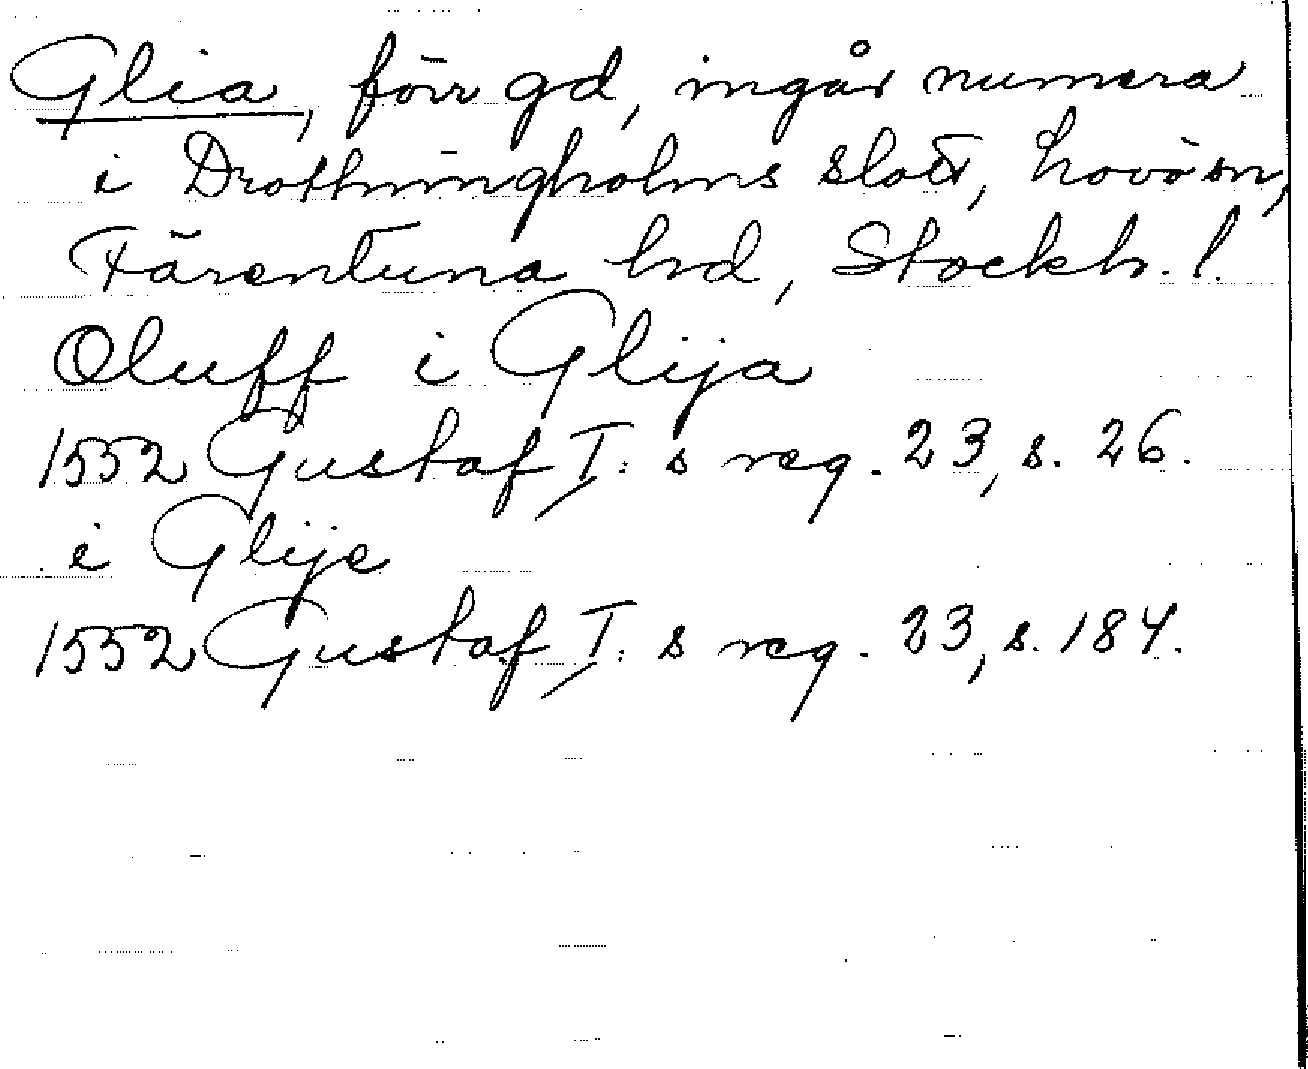 Glia, förr gd, ingår numera
i Drottningholms slott, Lovö sn,
Färentuna hd, Stockh. l.
Oluff i Glija
1552 Gustaf I: s reg. 23, s. 26.
i Glije
1552 Gustaf I: s reg. 23, s. 184.